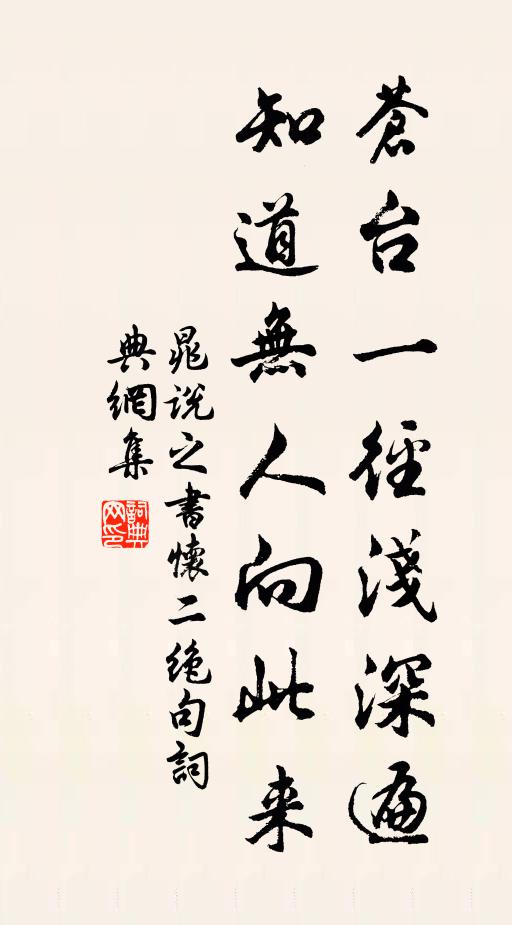 蒼台一徑淺深遍
知道無人向此来
晁説之書懷二绝句詞
典網集
詞典网印